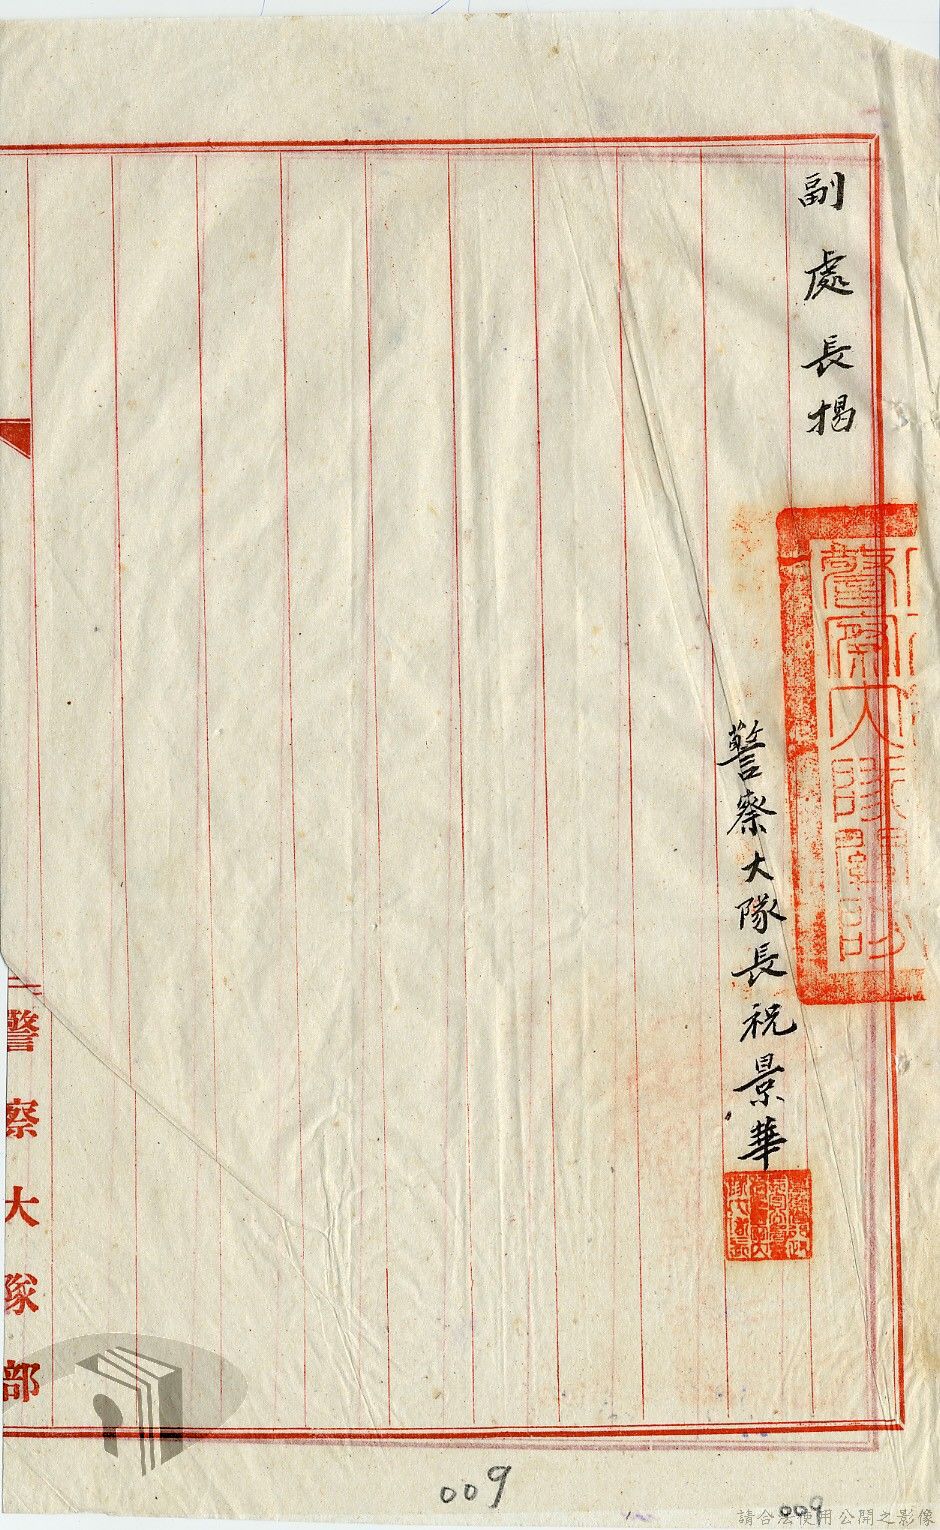 副處長揭
警察大隊關防
警察大隊長祝景華
警察大隊部
009
009
請合法使用公開之影像